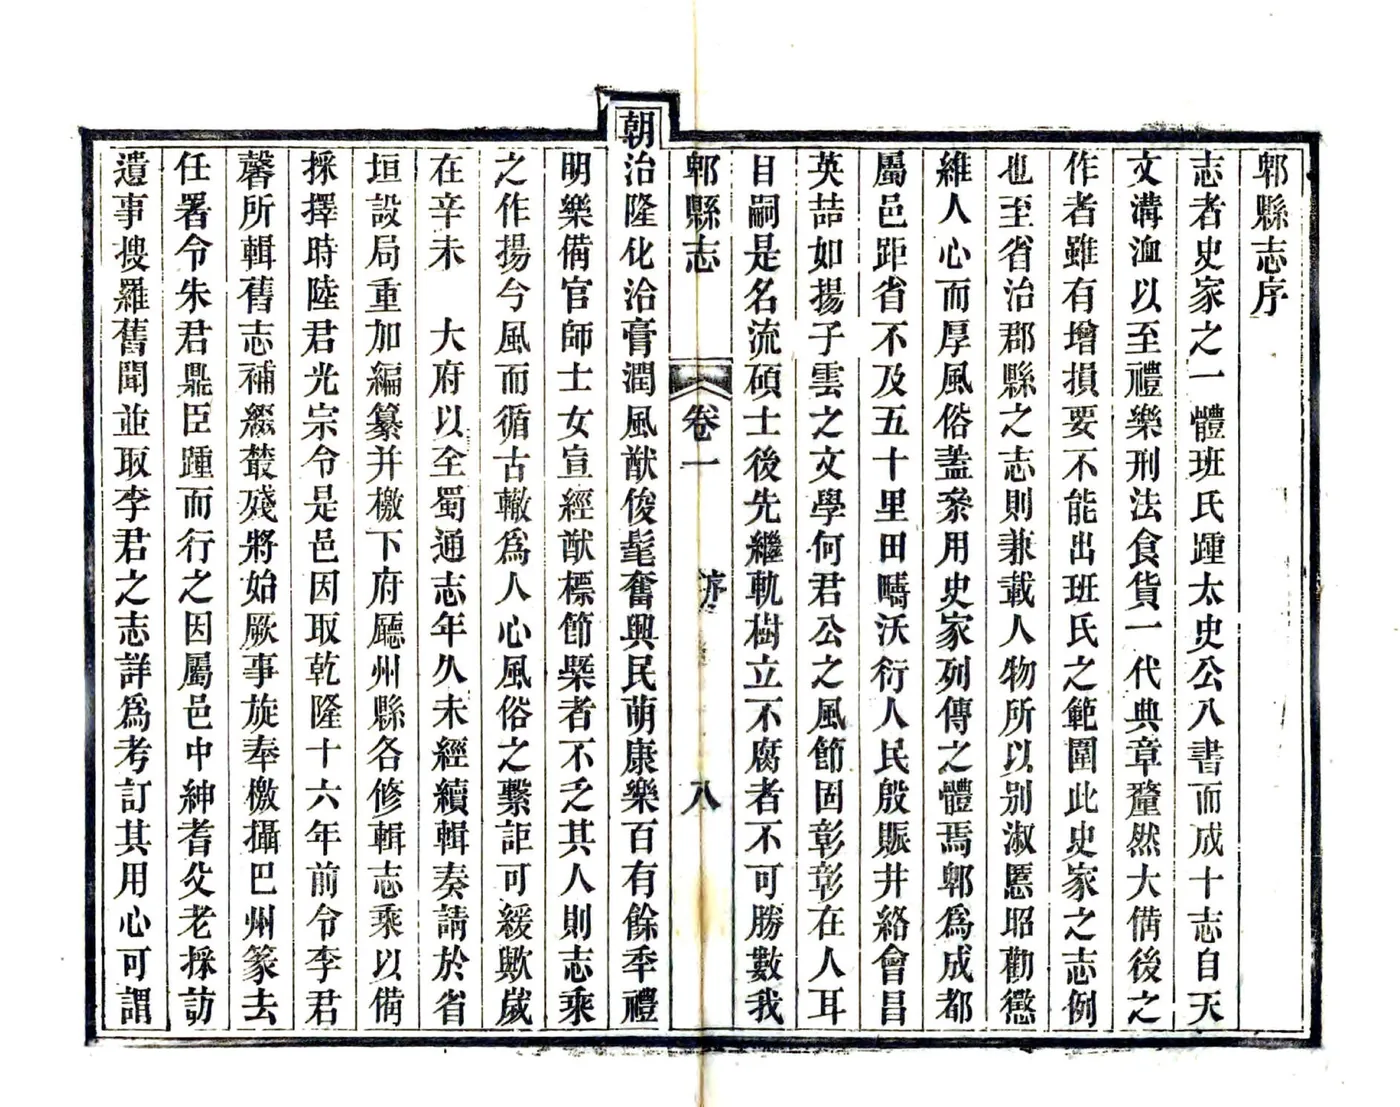 郫縣志序
志者史家之一體班氏踵太史公八書而成十志自天
文溝洫以至禮樂刑法食貨一代典章釐然大備後之
作者雖有增損要不能出班氏之範圍此史家之志例
也至省治郡縣之志則兼載人物所以别淑慝昭勸懲
維人心而厚風俗葢叅用史家列傳之體焉郫爲成都
屬邑距省不及五十里田疇沃衍人民殷賑井絡會昌
英喆如揚子雲之文學何君公之風節固彰彰在人耳
目嗣是名流碩士後先繼軌樹立不腐者不可勝數我
郫縣志
卷一
序
八
朝治隆化洽膏潤風猷俊髦奮興民萌康樂百有餘季禮
明樂備官師士女宣經猷標節槩者不乏其人則志乘
之作揚今風而循古轍爲人心風俗之繫詎可緩歟歲
在辛未　大府以全蜀通志年久未經續輯奏請於省
垣設局重加編纂并檄下府廳州縣各修輯志乘以備
採擇時陸君光宗令是邑因取乾隆十六年前令李君
馨所輯舊志補綴蕞殘將始厥事旋奉檄攝巴州篆去
任署令朱君鼎臣踵而行之因屬邑中紳耆父老採訪
遺事搜羅舊聞並取李君之志詳爲考訂其用心可謂